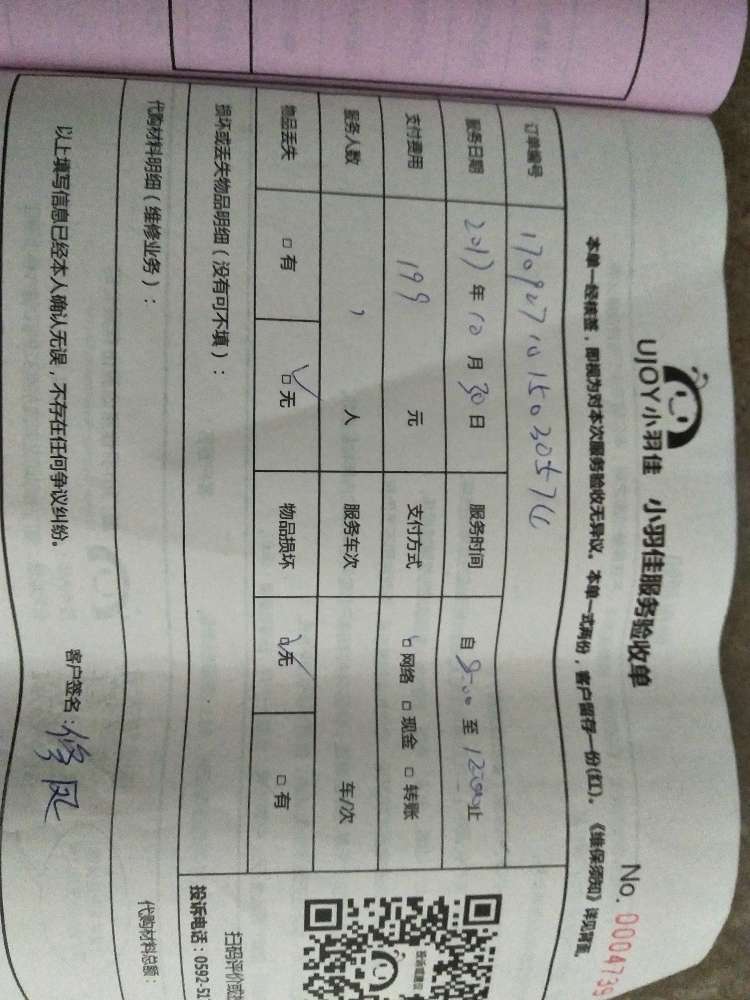 UJOY小羽佳 小羽佳服务验收单 No. 0004739
本单一经核签，即视为对本次服务验收无异议。本单一式两份，客户留存一份(红)。《维保须知》详见背面。
订单编号
服务日期 2017 年 10 月 30 日 服务时间 自 8:00 至 12:00 止
支付费用 199 元 支付方式 □ 网络 □ 现金 □ 转账
服务人数 1 人 服务车次 车/次
物品丢失 □ 有 □ 无 物品损坏 □ 无 □ 有
损坏或丢失物品明细（没有可不填）：
代购材料明细（维修业务）：
代购材料总额：
以上填写信息已经本人确认无误，不存在任何争议纠纷。
客户签名：修凤
投诉电话：0592-51